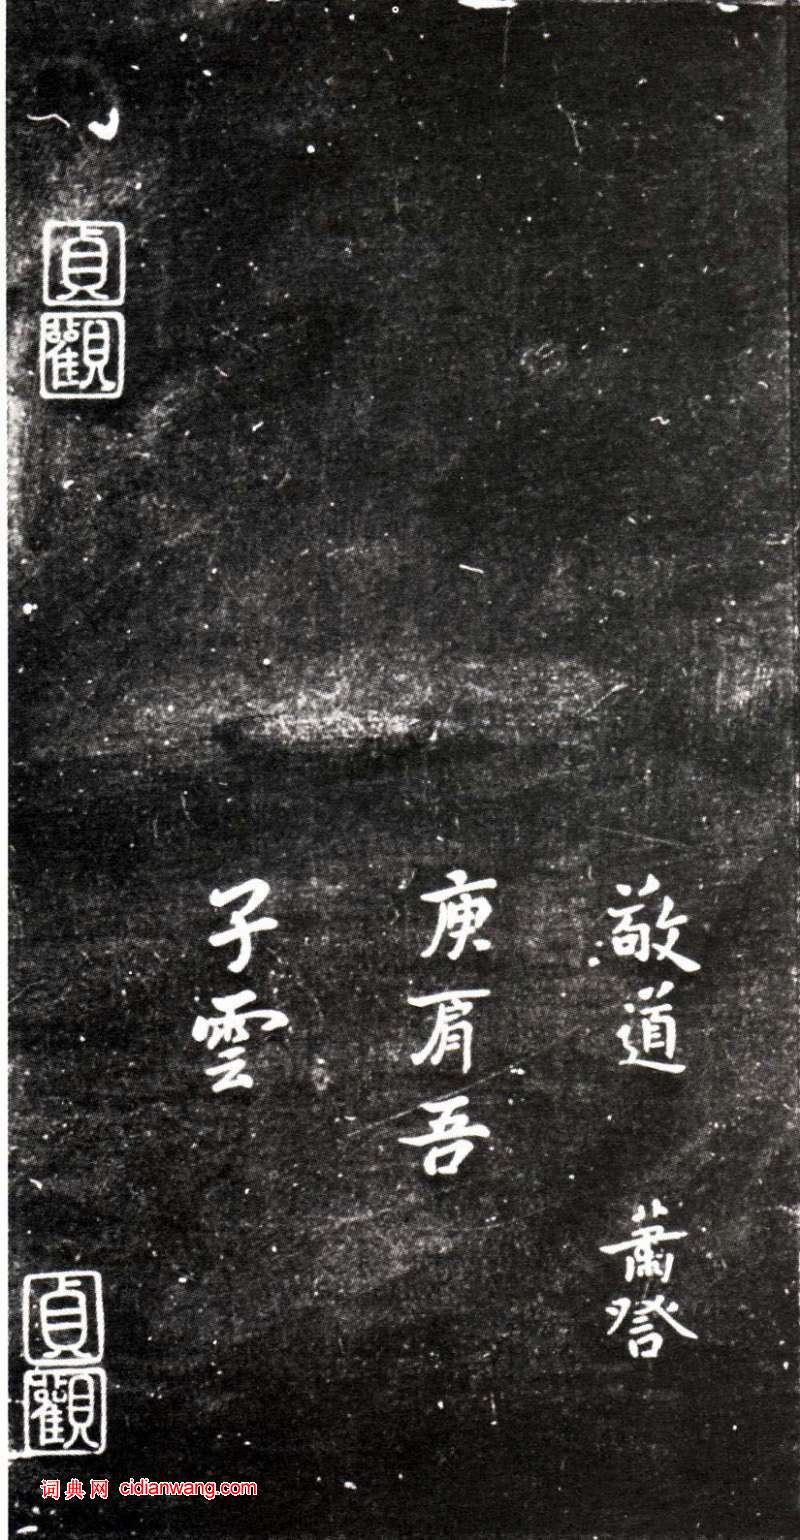 敬道 蕭詧
庾肩吾
子雲
貞觀
貞觀
词典网 cidianwang.com